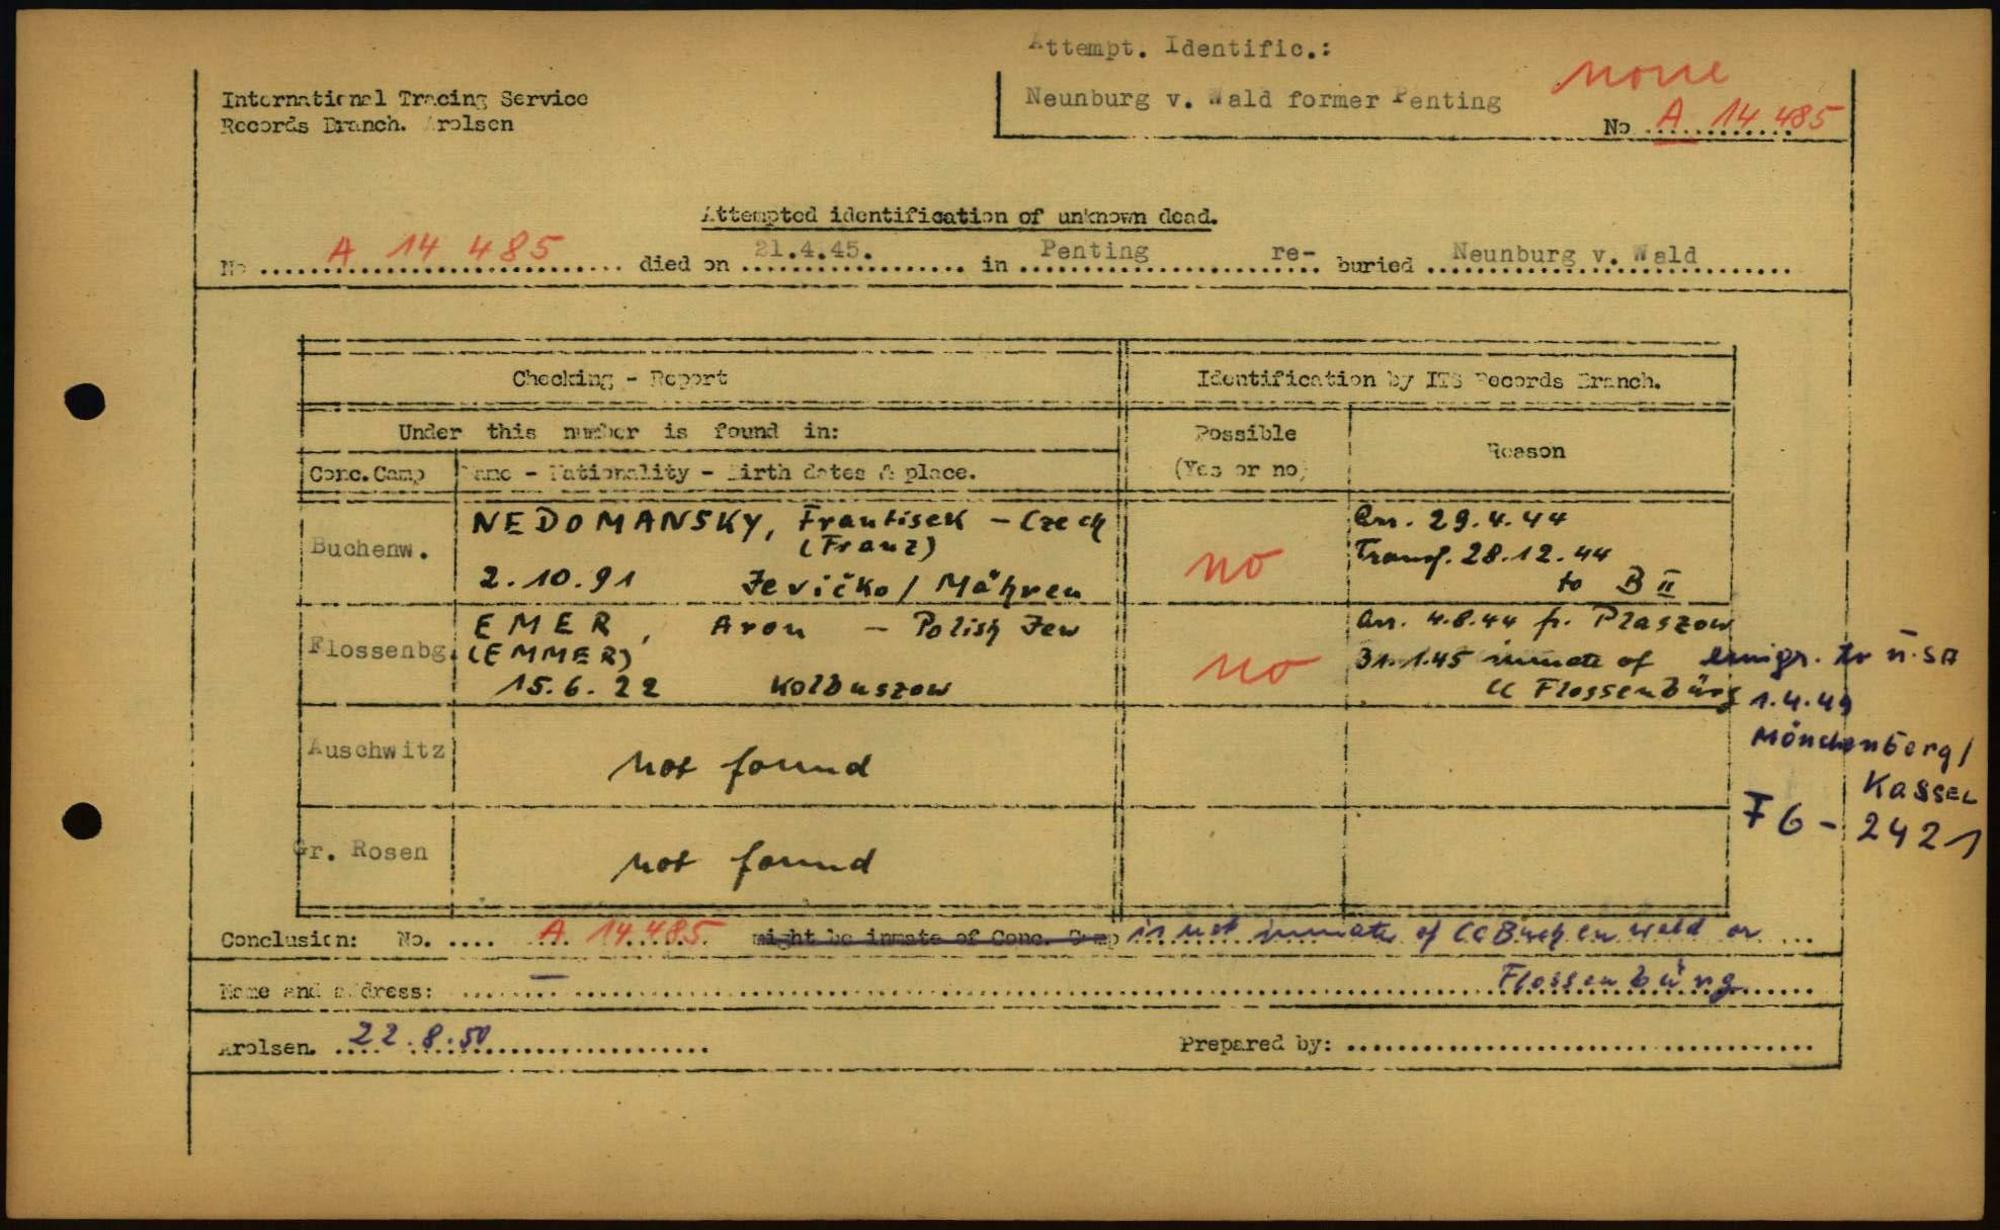 Attempt. Identific.:
none
International Tracing Service
Neunburg v. Wald former Penting
Records Branch. Arolsen
No A 14 485
Attempted identification of unknown dead.
No A 14 485 died on 21.4.45. in Penting re- buried Neunburg v. Wald
Checking - Report
Identification by ITS Records Branch.
Under this number is found in:
Possible
(Yes or no)
Reason
Conc. Camp
Name - Nationality - Birth dates & place.
Buchenw.
NEDOMANSKY, Frantisek - Czech
(Franz)
2.10.91 Jevičko / Mähren
no
Arr. 29.4.44
Transf. 28.12.44
to B II
Flossenbg.
EMER, Aron - Polish Jew
(EMMER)
15.6.22 Kolbuszow
no
Arr. 4.8.44 fr. Plaszow
31.1.45 inmate of
CC Flossenbürg
emigr. to U.SA
1.4.49
Mönchenberg/
Kassel
F6 - 2421
Auschwitz
not found
Gr. Rosen
not found
Conclusion: No. A 14 485 might be inmate of Conc. Camp is not inmate of CC Buchenwald or
Flossenbürg
Name and address: —
Arolsen. 22.8.50
Prepared by: